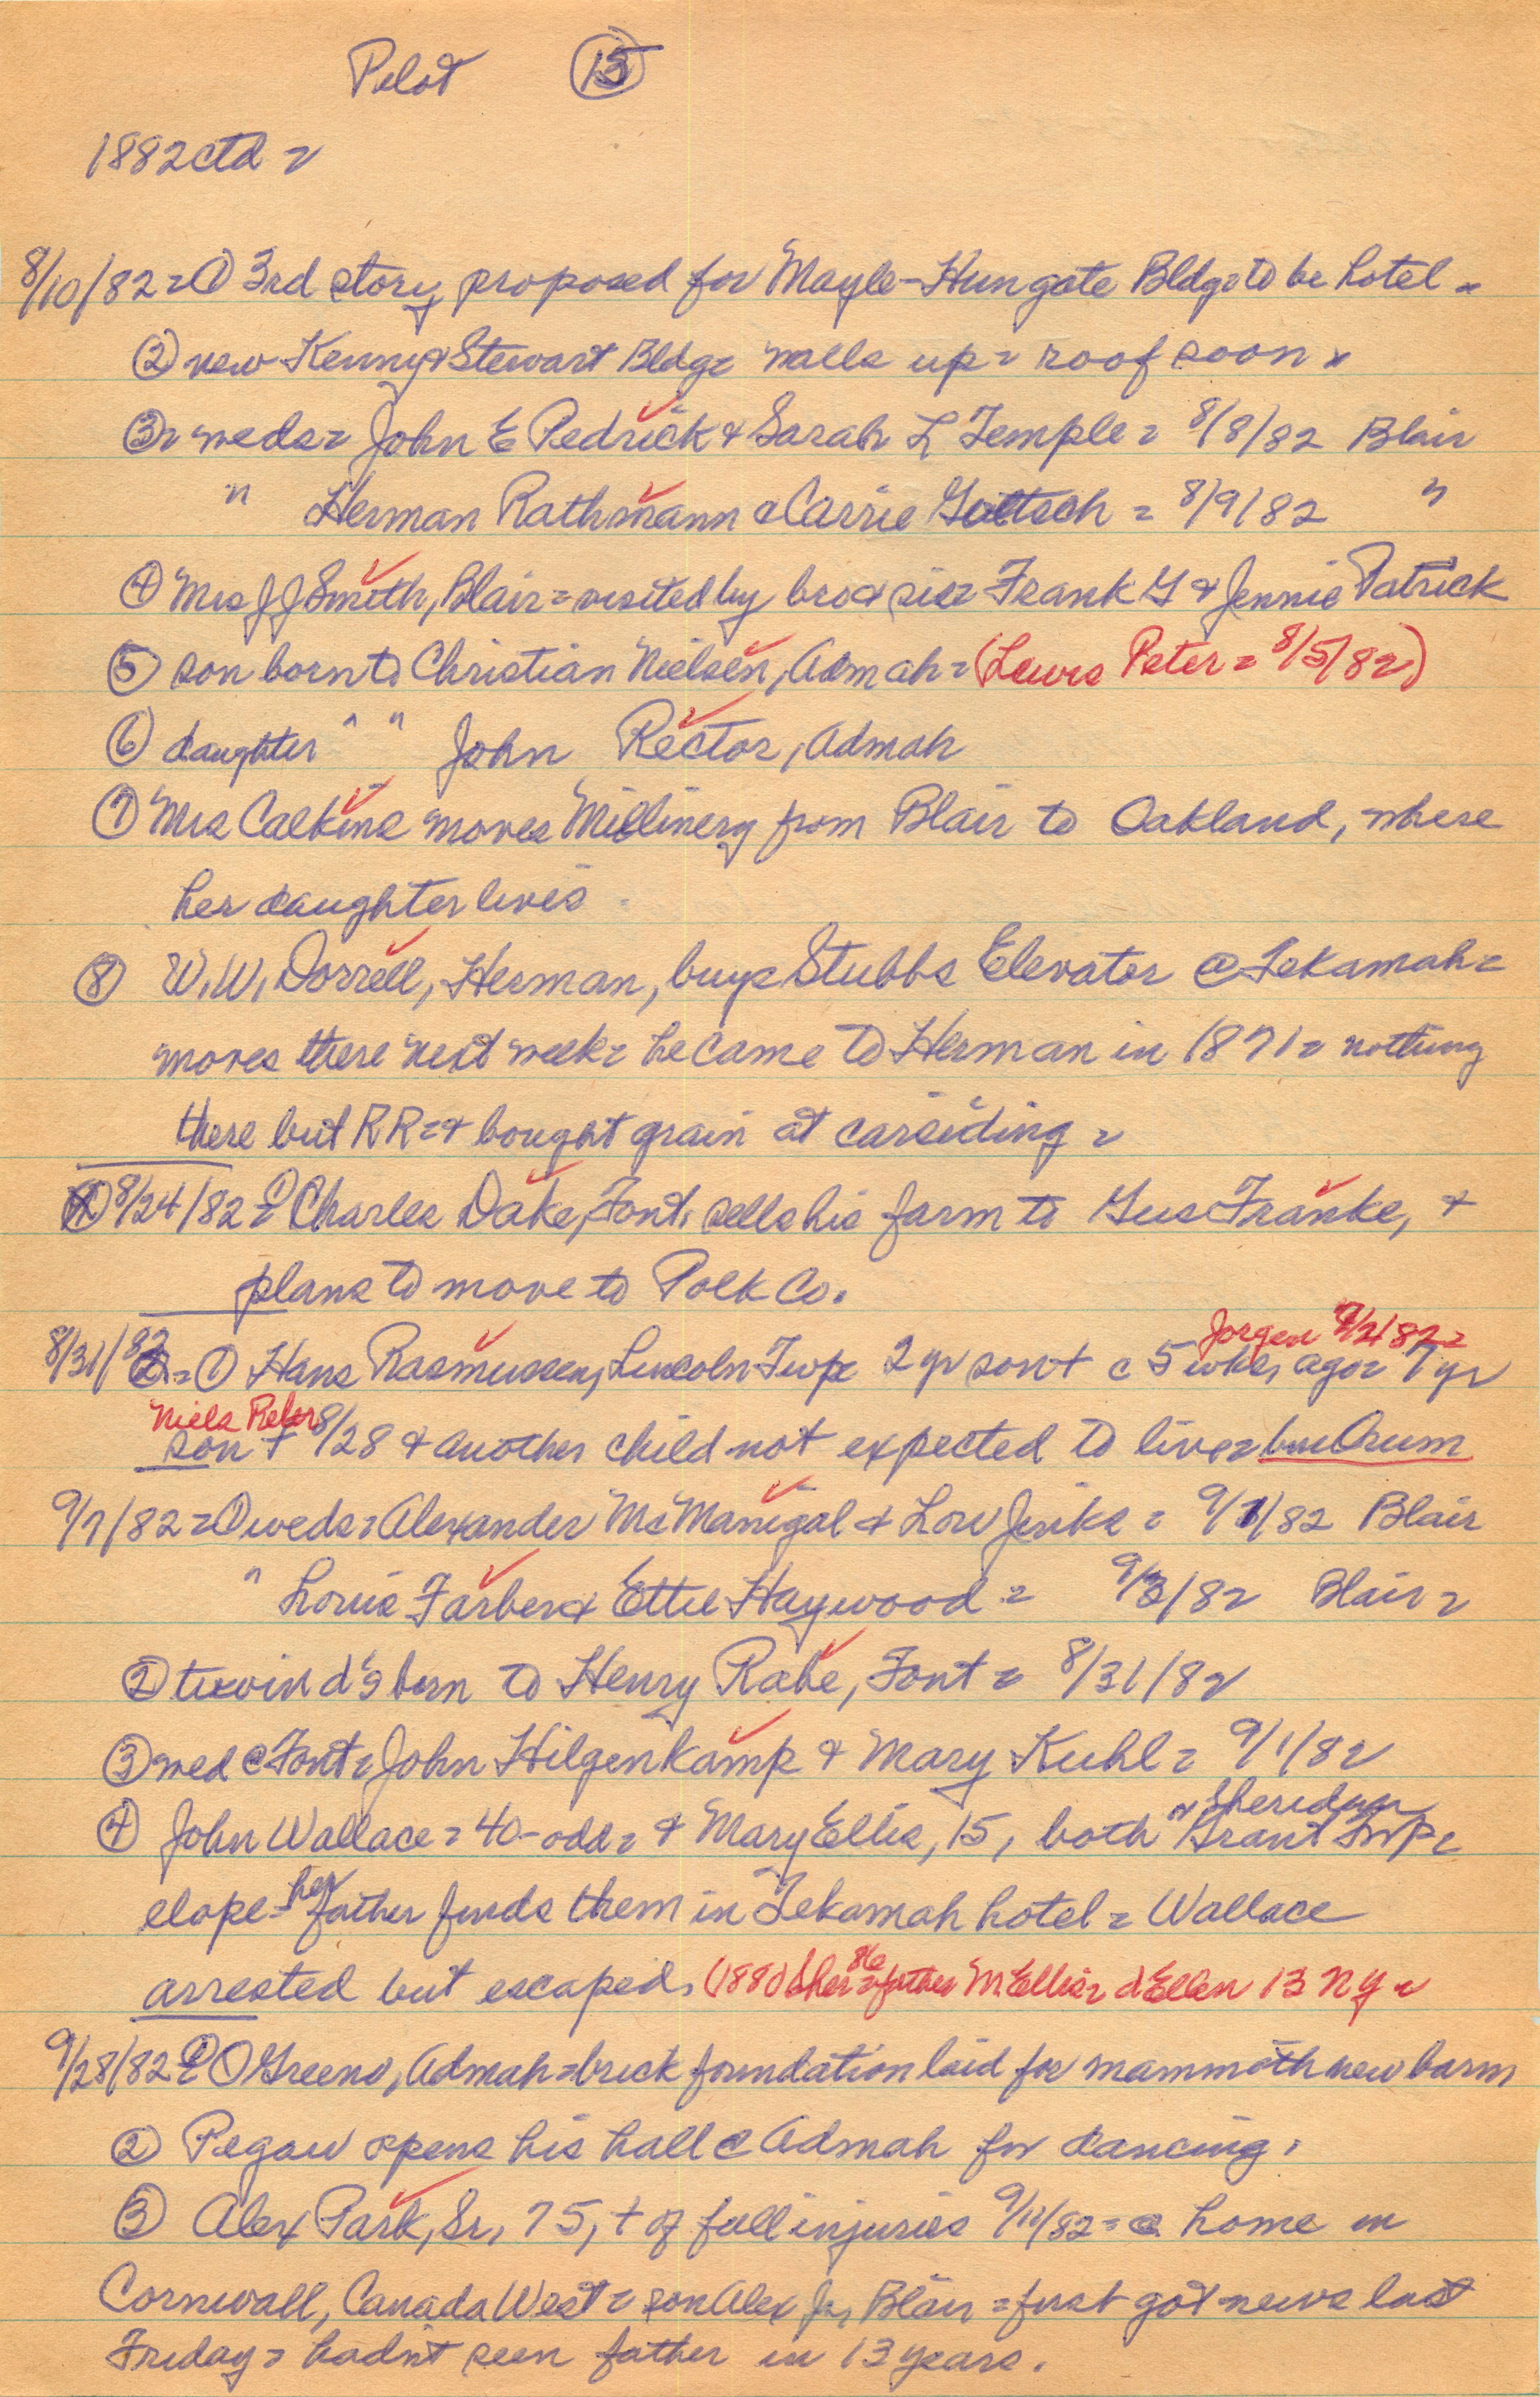 Pilot ⑮
1882 ctd =
8/10/82 = ① 3rd story proposed for Mayle-Hungate Bldg = to be hotel =
② new Kenny & Stewart Bldg = walls up = roof soon =
③ = weds = John E Pedrick & Sarah L Temple = 8/8/82 Blair
" Herman Rathmann & Carrie Gottsch = 8/9/82 "
④ Mrs J J Smith, Blair = visited by bro & sis = Frank G & Jennie Patrick
⑤ son born to Christian Nielsen, Admah = (Lewis Peter = 8/5/82)
⑥ daughter " " John Rector, Admah
⑦ Mrs Calkins moves Millinery from Blair to Oakland, where
her daughter lives
⑧ W.W. Dorrell, Herman, buys Stubbs Elevator @ Tekamah =
moves there next week = he came to Herman in 1871 = nothing
there but RR = & bought grain at carsiding =
8/24/82 = ① Charles Dake, Font. sells his farm to Gus Franke, &
plans to move to Polk Co.
Jorgen 7/21/82 =
8/31/82 = ① Hans Rasmussen, Lincoln Twp = 2 yr son + c 5 wks, ago = 7 yr
Niels Peter
son + 8/28 & another child not expected to live = bu Orum
9/7/82 = ① weds = Alexander McManigal & Lou Jenks = 9/1/82 Blair
" Louis Farber & Ettie Haywood = 9/3/82 Blair =
② twin d's born to Henry Rabe, Font = 8/31/82
③ wed @ Font = John Hilgenkamp & Mary Kuhl = 9/1/82
④ John Wallace = 40-odd = & Mary Ellis, 15, both Grant or Sheridan Twp =
elope = her father finds them in Tekamah hotel = Wallace
arrested but escaped. (1880 Sher = father M. Ellis 86 = d Ellen 13 NY =
9/28/82 = ① O Greeno, Admah = brick foundation laid for mammoth new barn
② Pegau opens his hall @ Admah for dancing.
③ Alex Park, Sr, 75, + of fall injuries 9/11/82 = @ home in
Cornwall, Canada West = son Alex Jr, Blair = just got news last
Friday = hadn't seen father in 13 years.